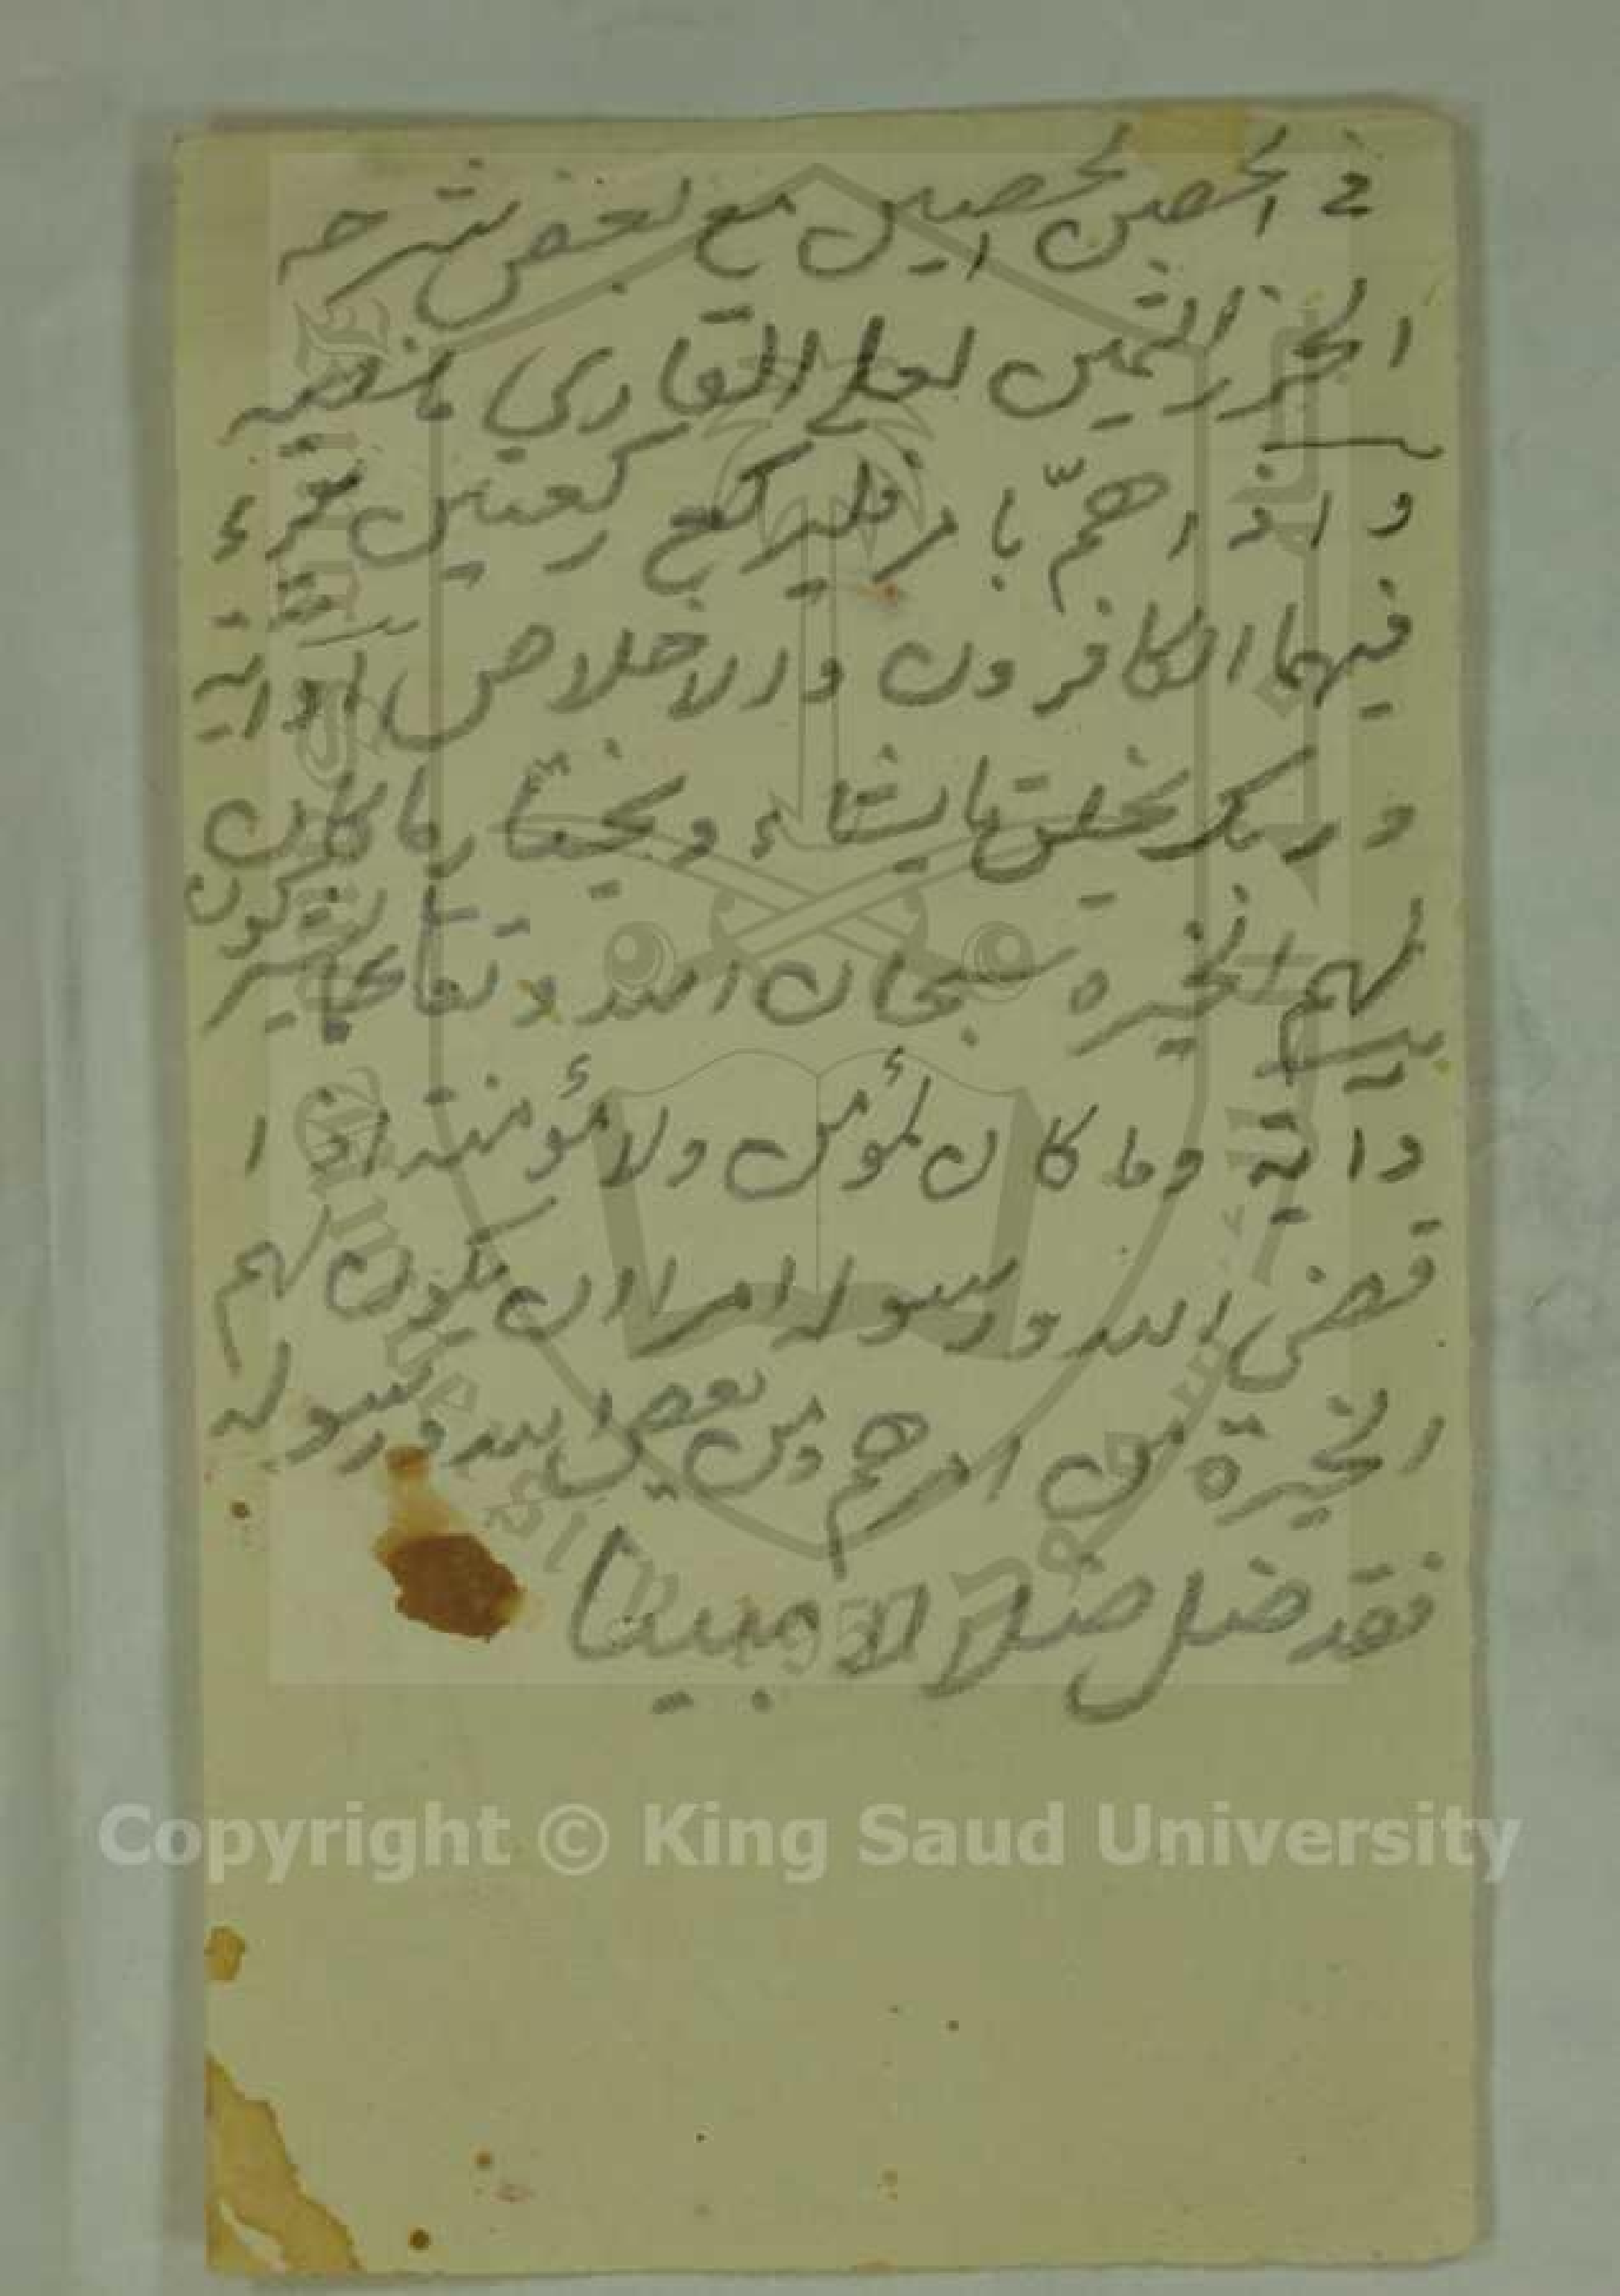 في الحصن الحصين مع بعض شرحه
الحرز الثمين لعلي القاري ما نصه
واذا هم بامر فليركع ركعتين يقرء
فيهما الكافرون والاخلاص او اية
وربك يخلق ما يشاء ويختار ما كان
لهم الخيرة سبحان الله وتعالى عما يشركون
واية وما كان لمؤمن ولا مؤمنة اذا
قضى الله ورسوله امرا ان يكون لهم
الخيرة من امرهم ومن يعص الله ورسوله
فقد ضل ضلالا مبينا
Copyright © King Saud University